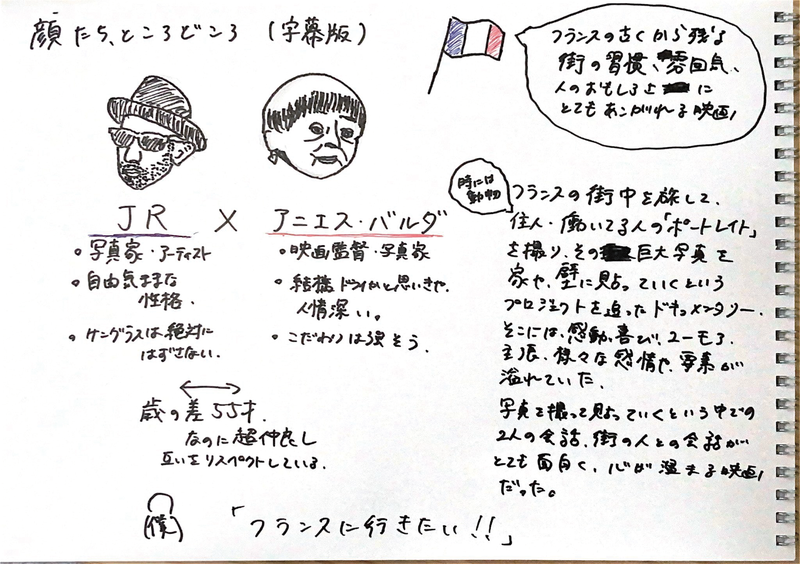 顔たち、ところどころ (字幕版)
フランスの古くから残る
街の習慣、雰囲気、
人のおもしろさに
とてもあこがれる映画!
JR × アニエス・バルダ
・写真家・アーティスト
・自由気ままな
性格。
・サングラスは絶対に
はずせない。
・映画監督・写真家
・結構ドライかと思いきや、
人情深い。
・こだわりは強そう。
歳の差55才。
なのに超仲良し
互いをリスペクトしている。
時には
動物
フランスの街中を旅して、
住人・働いてる人の「ポートレイト」
を撮り、その巨大写真を
家や、壁に貼っていくという
プロジェクトを追ったドキュメンタリー。
そこには、感動、喜び、ユーモア、
主張、様々な感情や、要素が
溢れていた。
写真を撮って貼っていくという中での
2人の会話、街の人との会話が
とても面白く、心が温まる映画
だった。
(僕)
「フランスに行きたい!!」